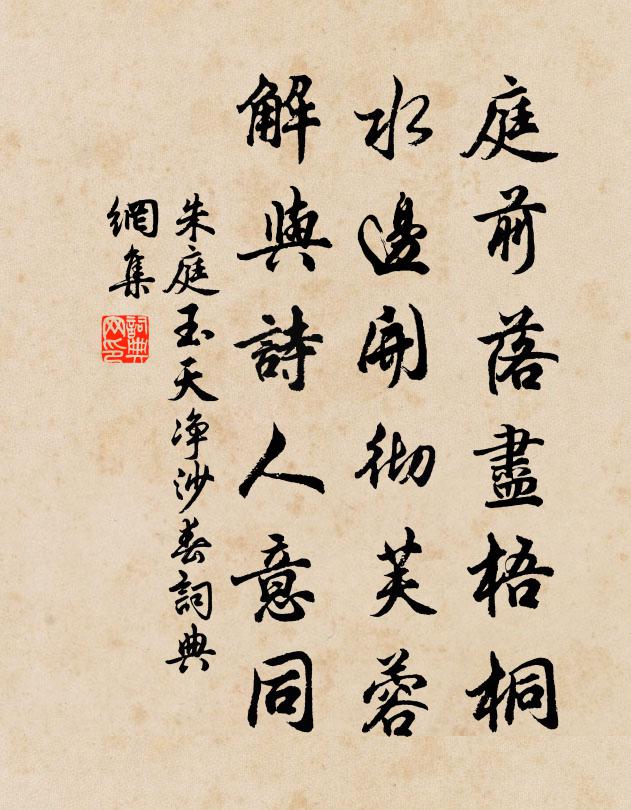 庭前落盡梧桐
水邊開彻芙蓉
解與詩人意同
朱庭玉天净沙春詞典
網集
詞典
网印